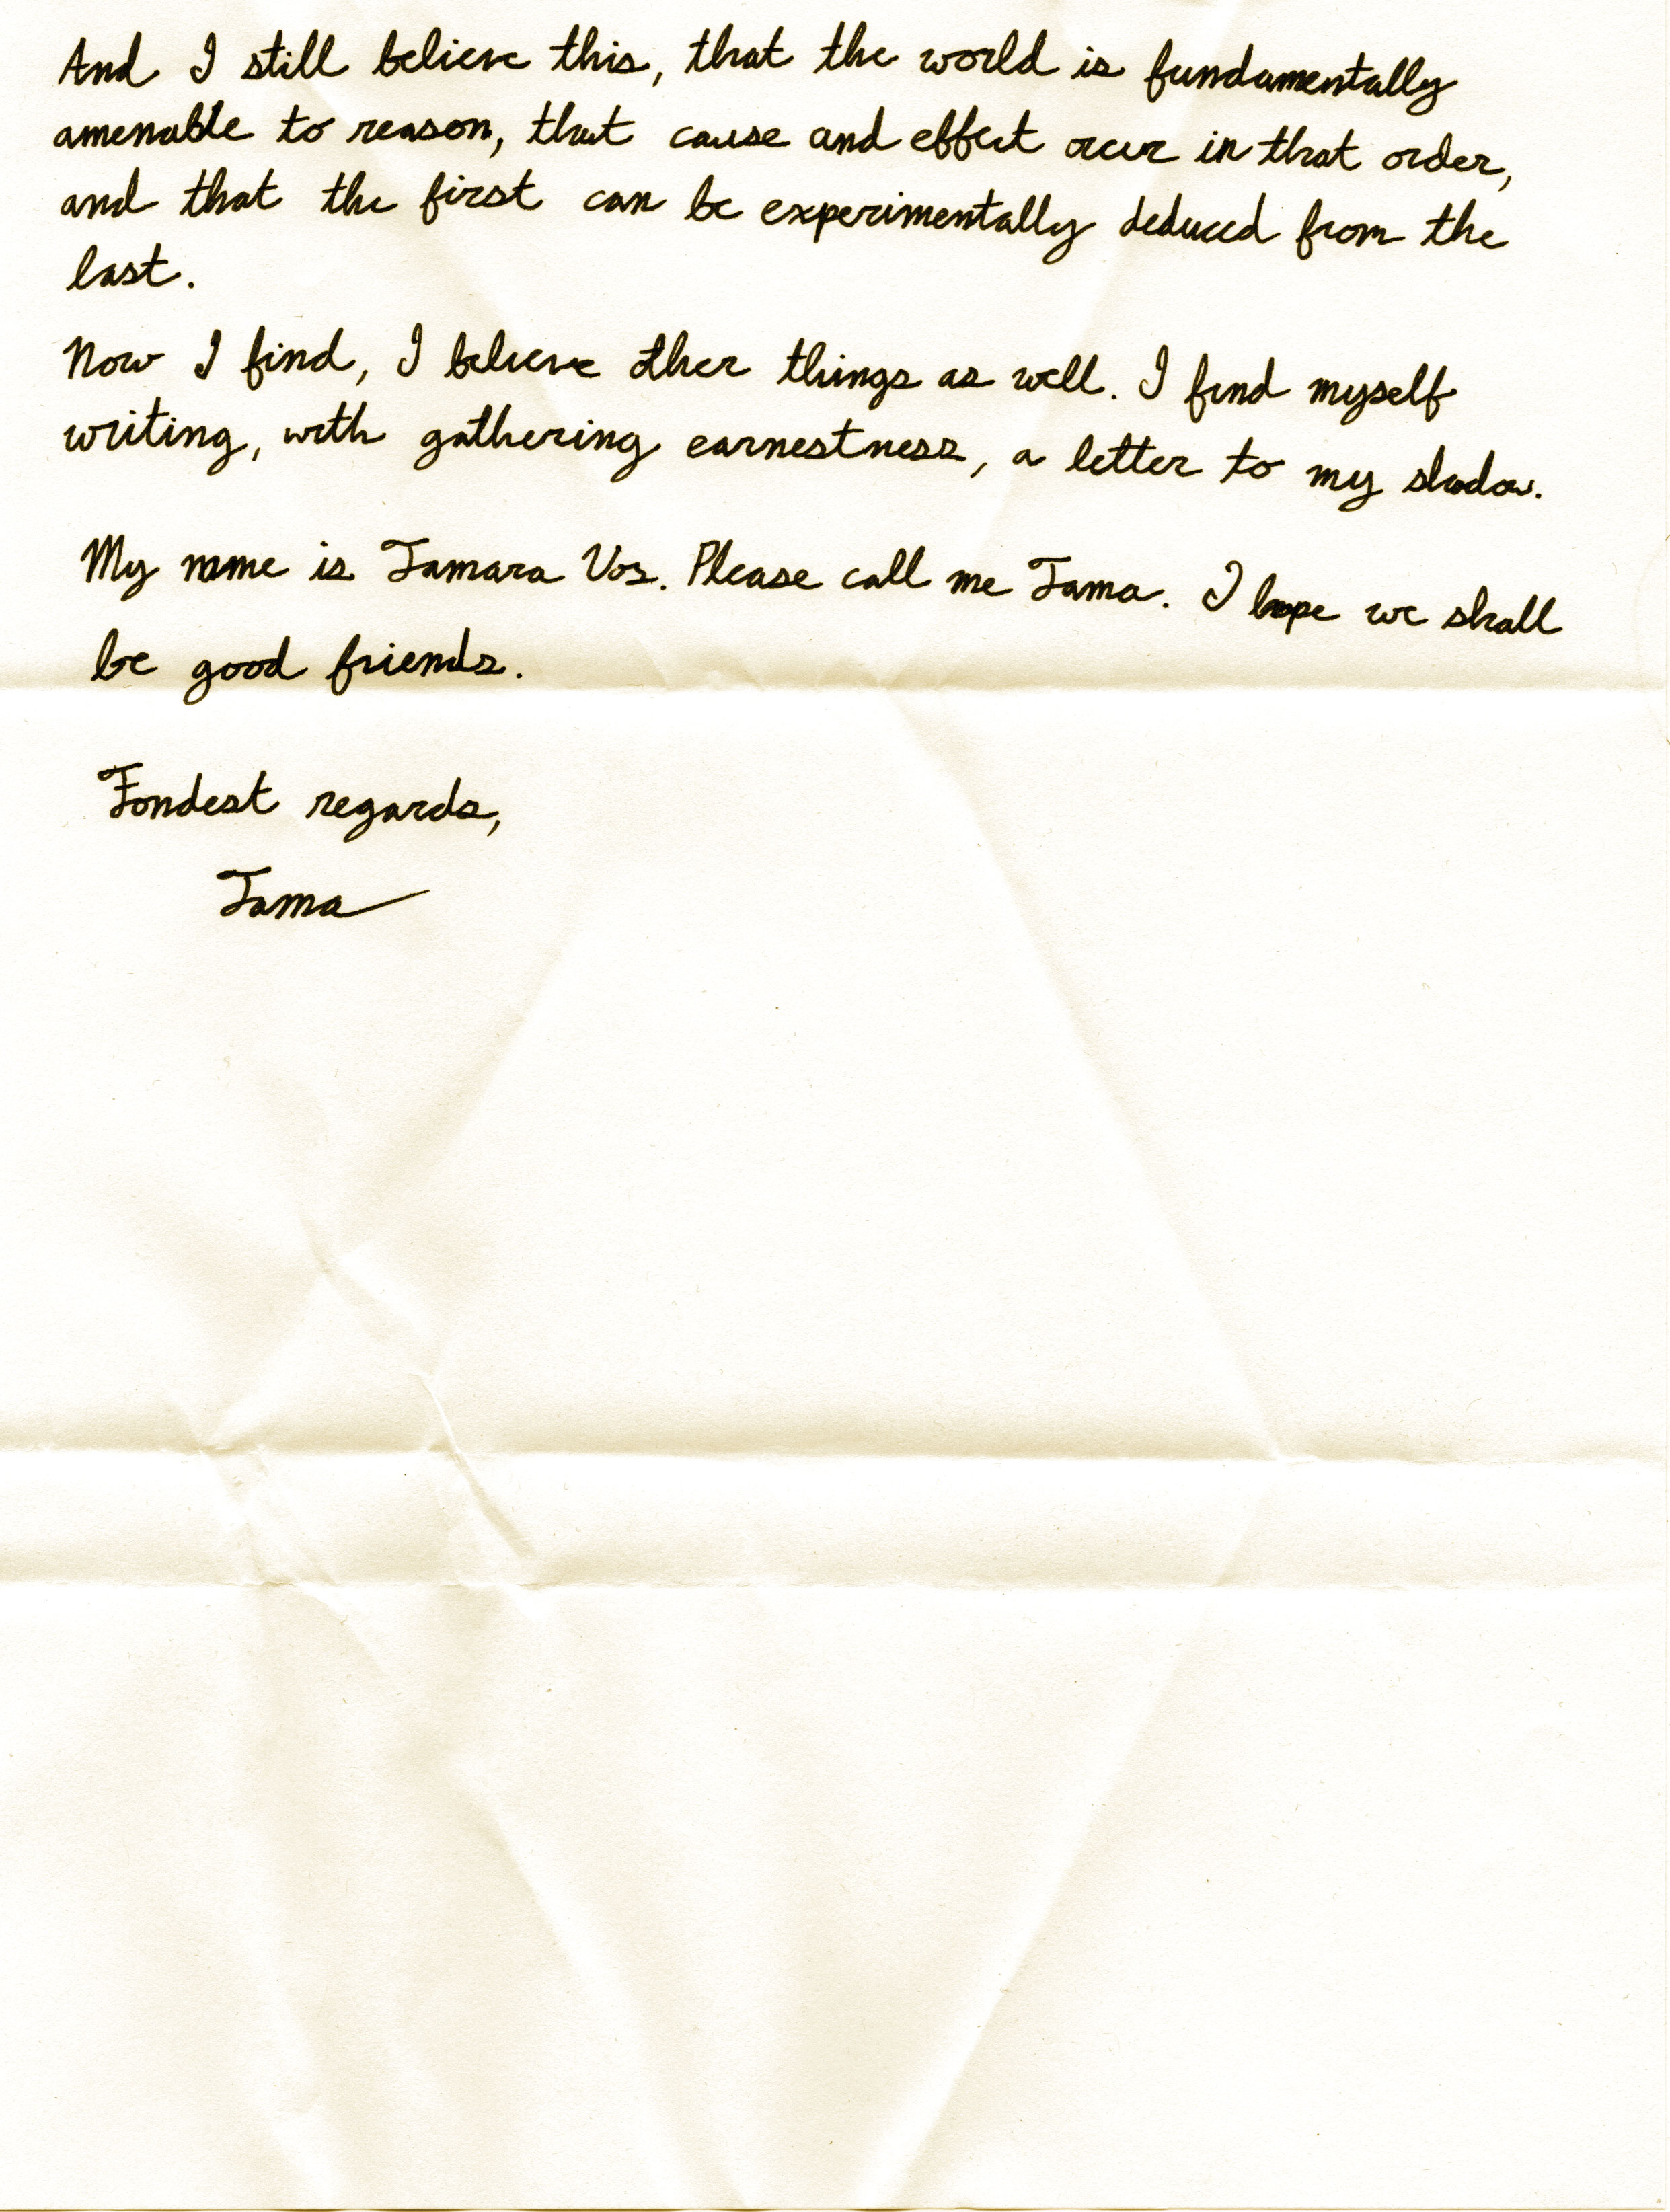 And I still believe this, that the world is fundamentally
amenable to reason, that cause and effect occur in that order,
and that the first can be experimentally deduced from the
last.
Now I find, I believe other things as well. I find myself
writing, with gathering earnestness, a letter to my shadow.
My name is Tamara Vos. Please call me Tama. I hope we shall
be good friends.
Fondest regards,
Tama